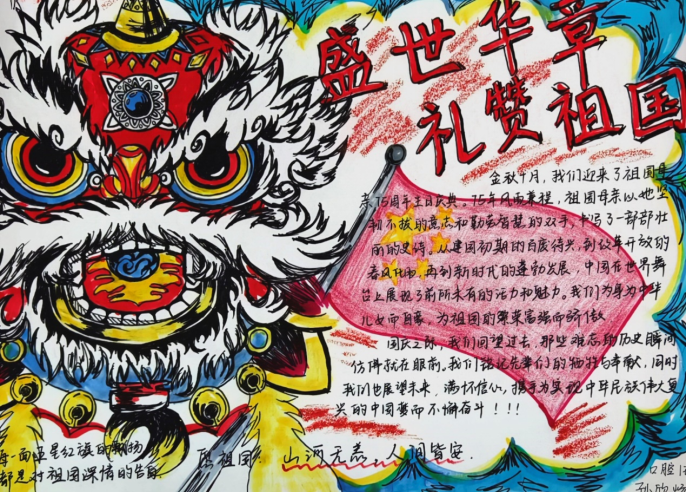 盛世华章
礼赞祖国
金秋十月，我们迎来了祖国母
亲75周年生日庆典。75年风雨兼程，祖国母亲以她坚
韧不拔的意志和勤劳智慧的双手，书写了一部部壮
丽的史诗。从建国初期的百废待兴，到改革开放的
春风化雨，再到新时代的蓬勃发展，中国在世界舞
台上展现了前所未有的活力和魅力。我们为身为中华
儿女而自豪，为祖国的繁荣富强而骄傲
国庆之际，我们回望过去，那些难忘的历史瞬间
仿佛就在眼前。我们铭记先辈们的牺牲与奉献，同时
我们也展望未来，满怀信心，携手为实现中华民族伟大复
兴的中国梦而不懈奋斗！！！
每一面五星红旗的飘扬
都是对祖国深情的告白
愿祖国：山河无恙，人间皆安.
口腔
孙欣